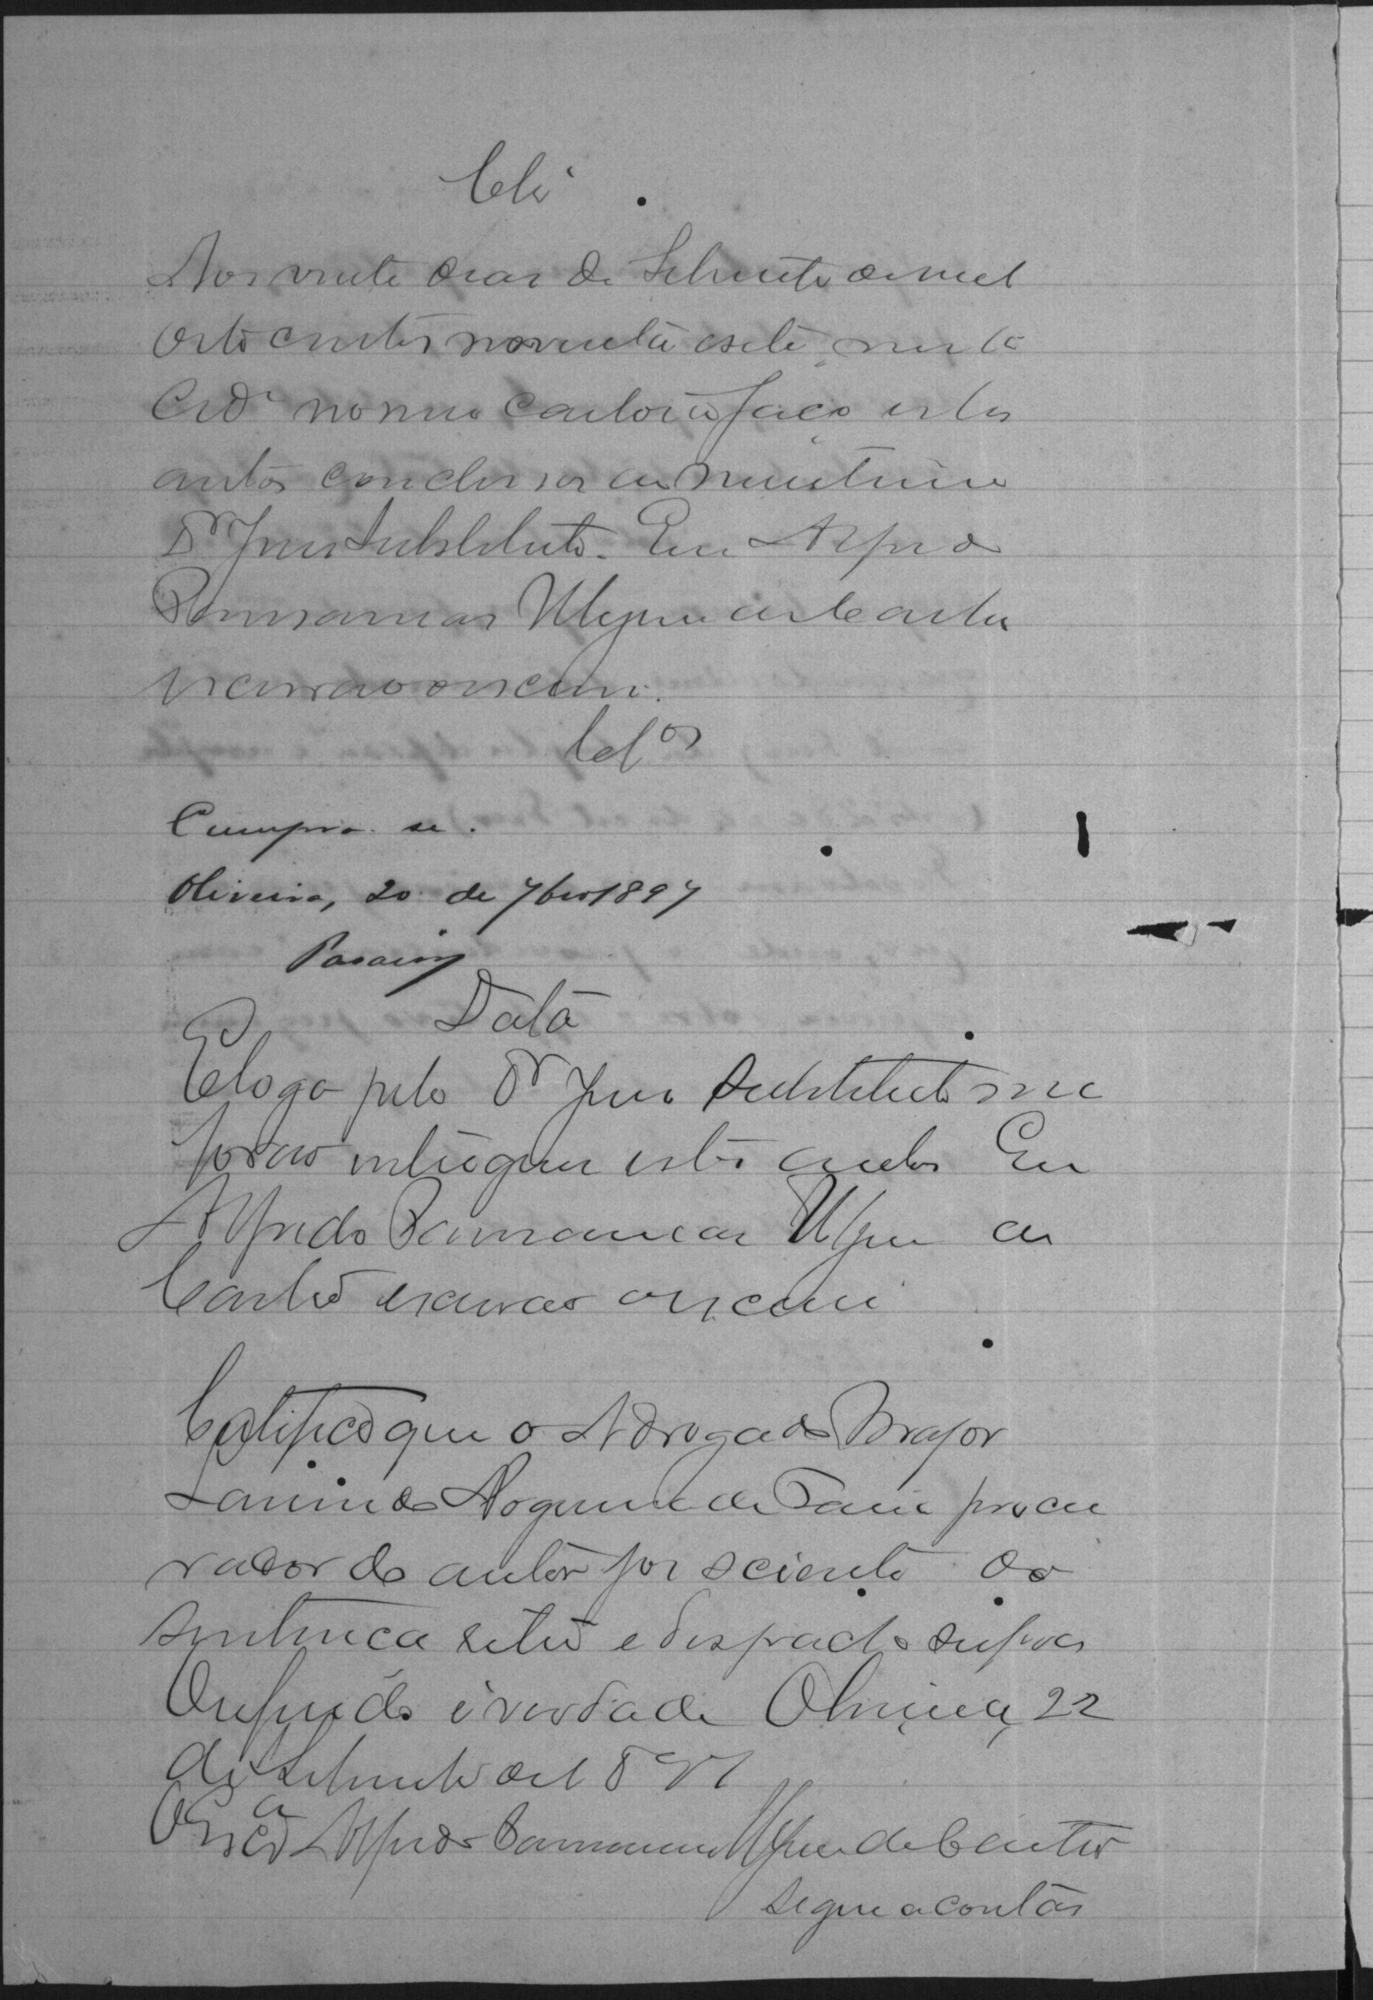 Cls
Aos vinte dias de Setembro de mil
oito centos noventa e sete, nesta
Cid.e no meu Cartorio faço estes
autos conclusos ao meritissimo
Dr Juiz Substituto. Eu Alfredo
de Castro
escrivão o escrevi.
Cls
Cumpra-se.
Oliveira, 20 de 7bro 1897
Data
E logo pelo Dr Juiz Substituto me
forão entregues estes autos Eu
Alfredo de
Castro escrivão o escrevi
Certifico que o Advogado Major
Nogueira de procu
rador do autor foi sciente da
sentença retro e despacho supra
O referido é verdade Oliveira, 22
de Setembro de 1897
O Escam Alfredo de Castro
Segue a conta